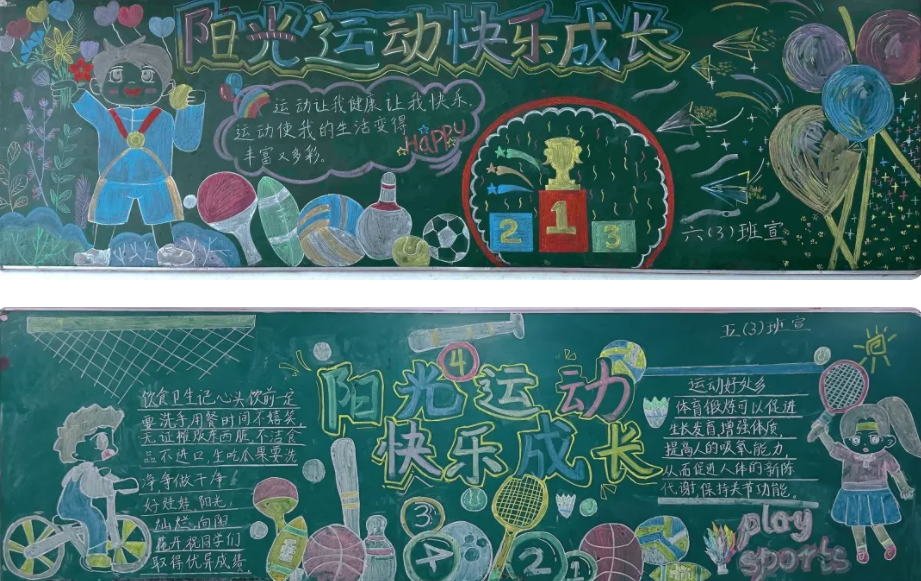 阳光运动快乐成长
运动让我健康让我快乐,
运动使我的生活变得
丰富又多彩。
HAPPY
1
2
3
六(3)班宣
五(3)班宣
4
阳光运动
快乐成长
饮食卫生记心头饮前定
要洗手用餐时间不嬉笑,
无证摊贩东西脏不洁食
品不进口,生吃瓜果要洗
净等做干净
好娃娃,阳光,
灿烂,向阳
花开祝同学们
取得优异成绩
运动好处多
体育锻炼可以促进
生长发育,增强体质,
提高人的吸氧能力,
从而促进人体的新陈
代谢,保持关节功能。
3
2
1
play
sports